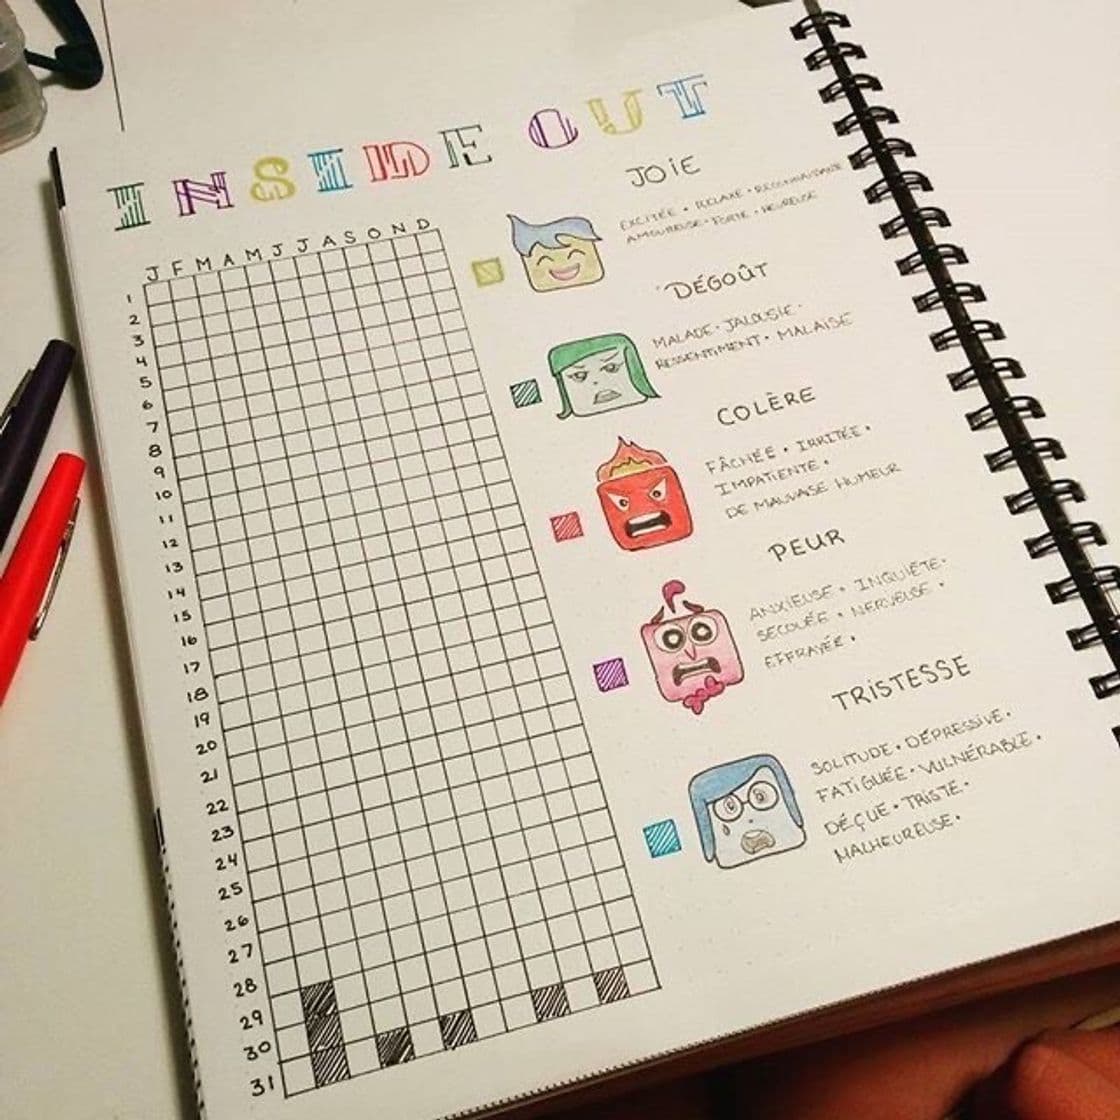 INSIDE OUT
J F M A M J J A S O N D
1
2
3
4
5
6
7
8
9
10
11
12
13
14
15
16
17
18
19
20
21
22
23
24
25
26
27
28
29
30
31
JOIE
EXCITÉE • RELAXE • RECONNAISSANTE
AMOUREUSE • FORTE • HEUREUSE
DÉGOÛT
MALADE • JALOUSIE •
RESSENTIMENT • MALAISE
COLÈRE
FÂCHÉE • IRRITÉE •
IMPATIENTE •
DE MAUVAISE HUMEUR
PEUR
ANXIEUSE • INQUIÈTE •
SECOUÉE • NERVEUSE •
EFFRAYÉE •
TRISTESSE
SOLITUDE • DÉPRESSIVE •
FATIGUÉE • VULNÉRABLE •
DÉÇUE • TRISTE •
MALHEUREUSE •